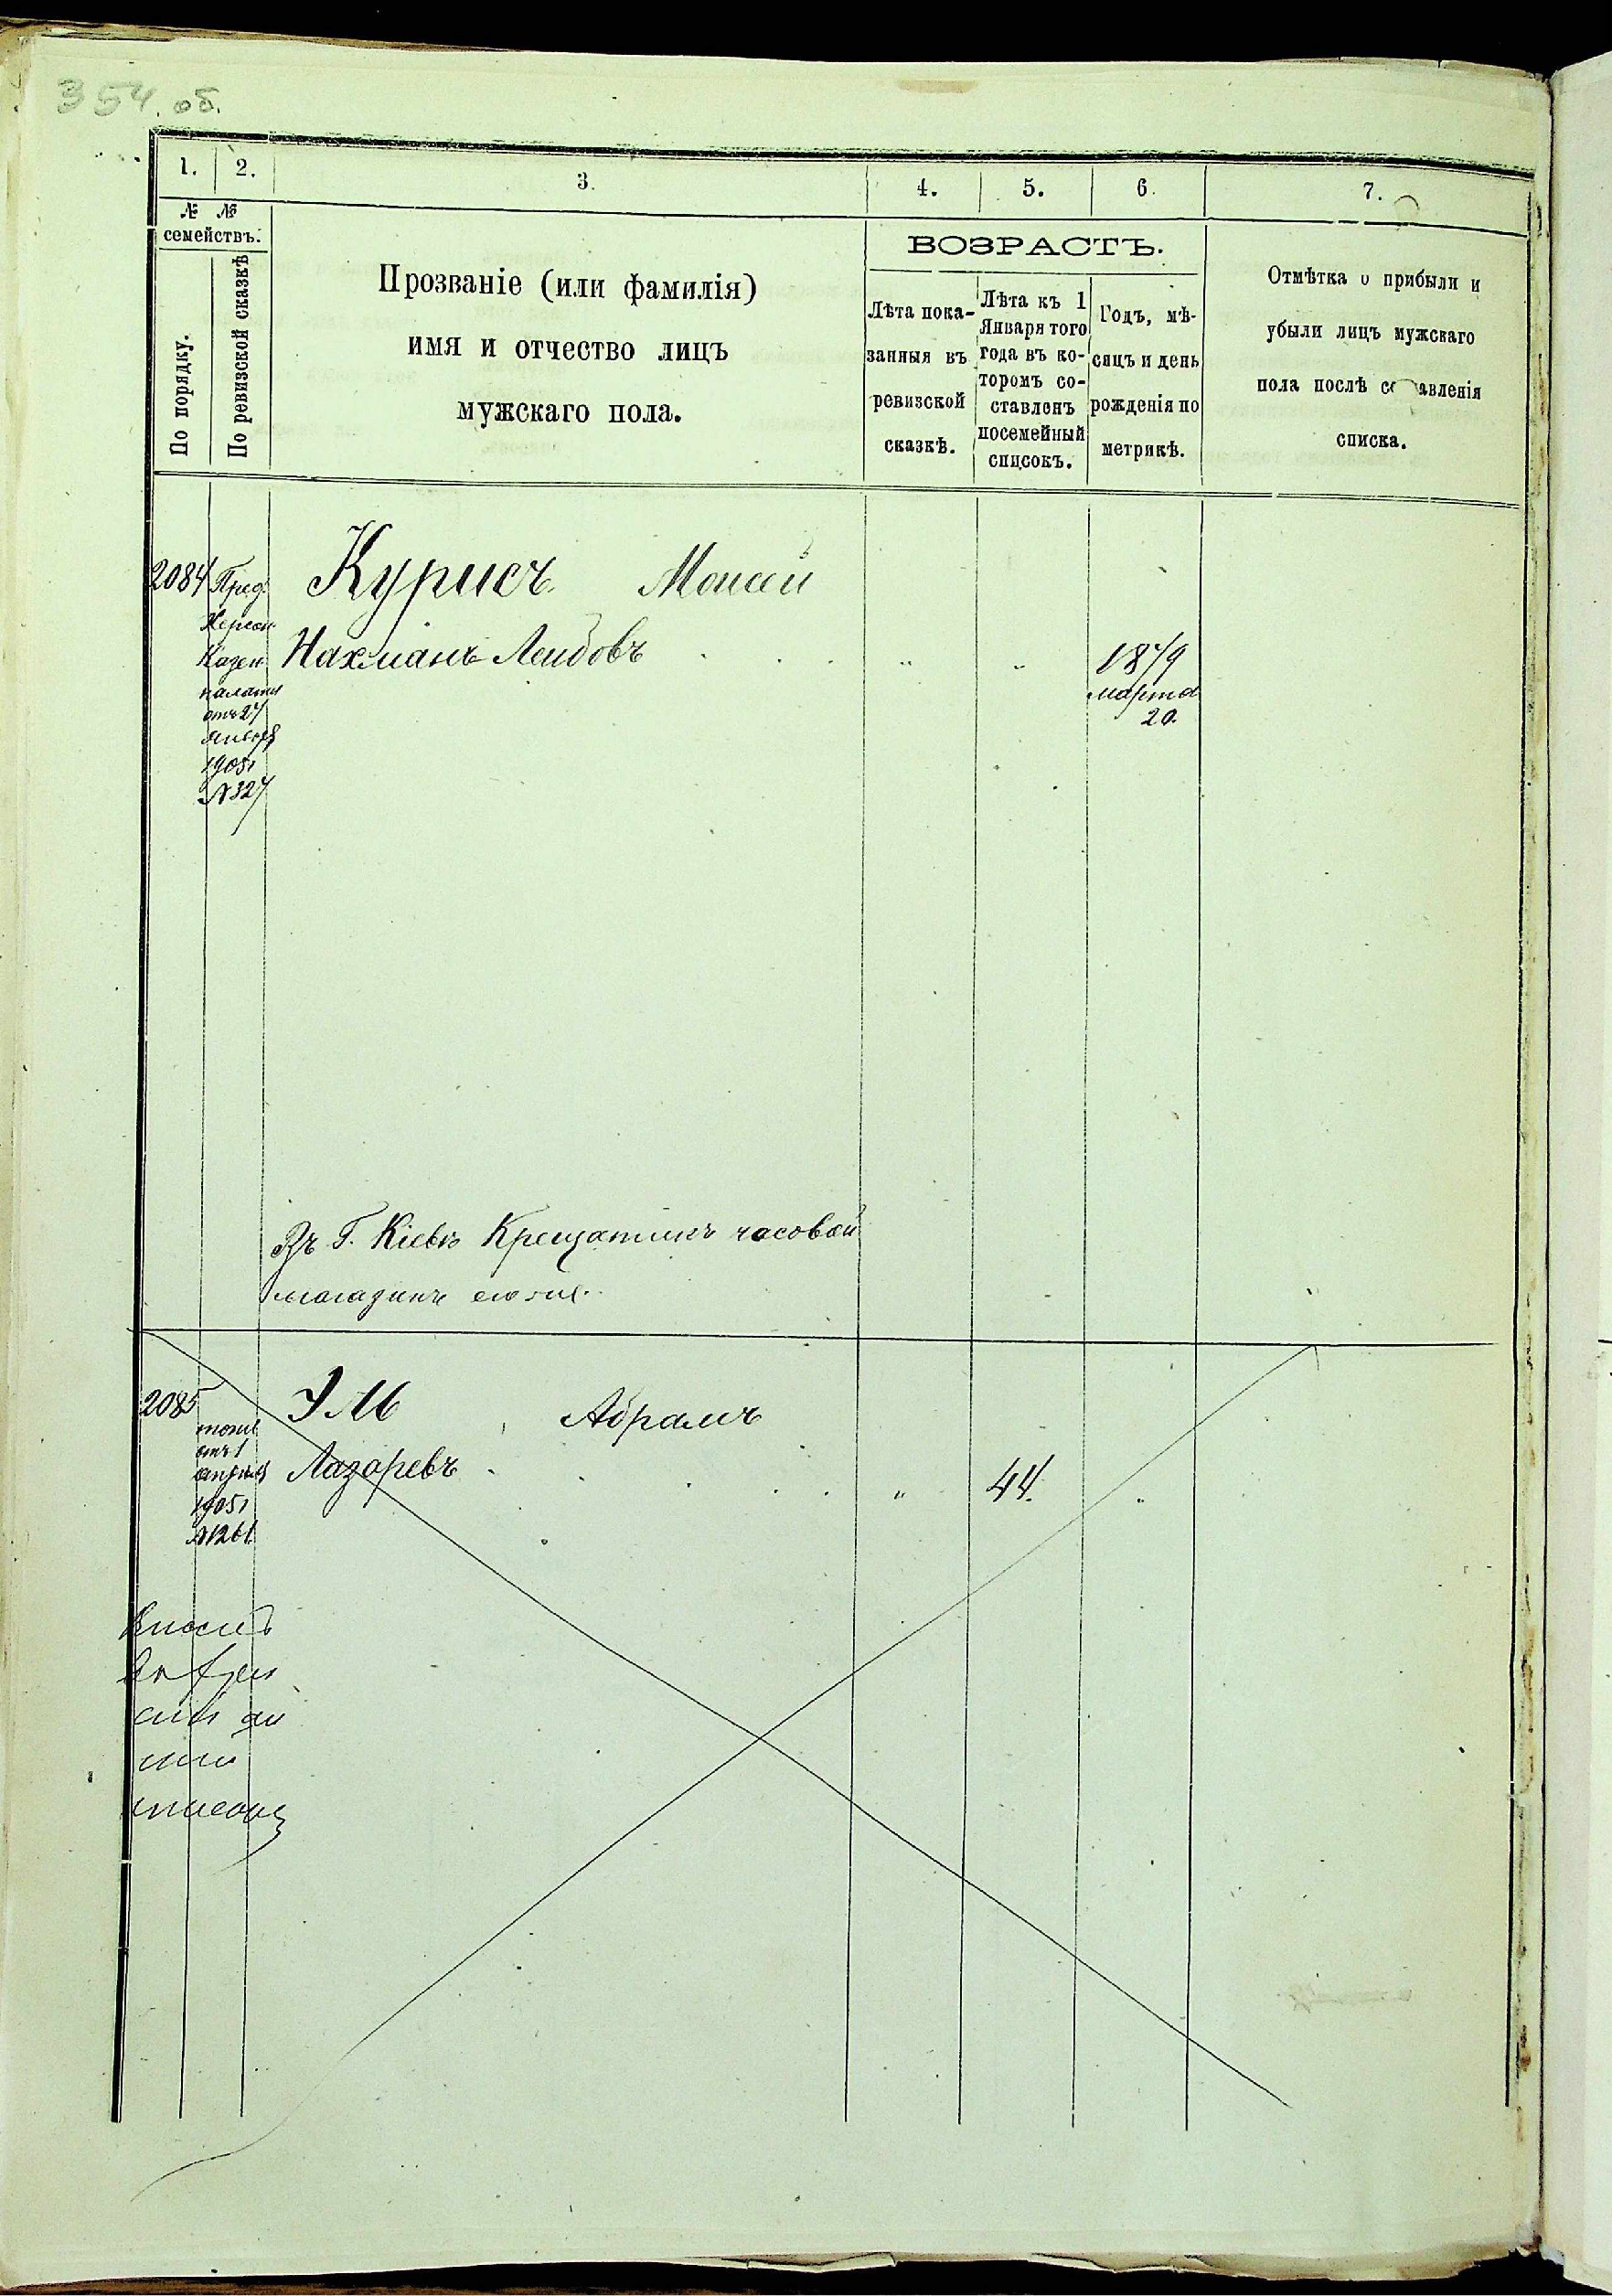 354. об.
1. 2. 3. 4. 5. 6. 7.
№ №
семействъ.
По порядку.
По ревизской сказкѣ
Прозваніе (или фамилія)
имя и отчество лицъ
мужскаго пола.
ВОЗРАСТЪ.
Лѣта пока-
занныя въ
ревизской
сказкѣ.
Лѣта къ 1
Января того
года въ ко-
торомъ со-
ставленъ
посемейный
списокъ.
Годъ, мѣ-
сяцъ и день
рожденія по
метрикѣ.
Отмѣтка о прибыли и
убыли лицъ мужскаго
пола послѣ со авленія
списка.
2084
Пред.
Херсон
Казен
палаты
отъ 27
Января
1905г
№327
Курисъ Моисей
Нахманъ Леибовъ
" "
1879
марта
20.
Въ Г. Кіевѣ Крещатикъ часовой
магазинъ
2085
тоже
отъ 1
апрѣля
1905г
№1261
Умъ Абрамъ
Лазаревъ
" 44. "